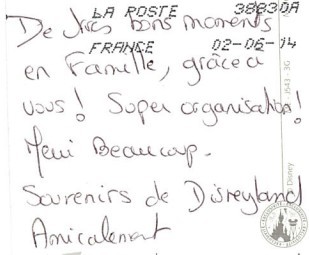 LA POSTE 38830A
De très bons moments
FRANCE 02-06-14
en Famille, grâce à
vous! Super organisation!
Merci Beaucoup.
Souvenirs de Disneyland
Amicalement
J543-3G
Disney